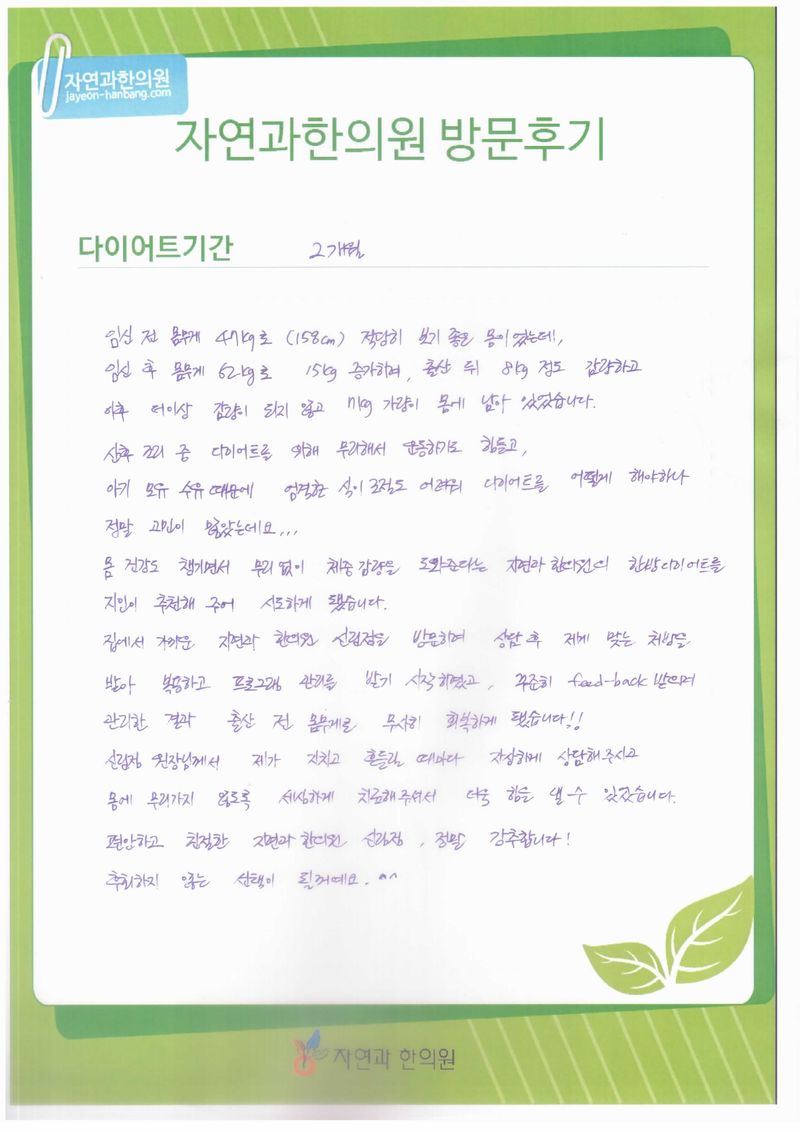 자연과한의원
jayeon-hanbang.com
자연과한의원 방문후기
다이어트기간 2개월
임신 전 몸무게 47kg로 (158cm) 적당히 보기 좋은 몸이었는데,
임신 후 몸무게 62kg로 15kg 증가하며, 출산 뒤 8kg 정도 감량하고
이후 더이상 감량이 되지 않고 7kg 가량이 몸에 남아 있었습니다.
산후 조리 중 다이어트를 위해 무리해서 운동하기도 힘들고,
아기 모유 수유 때문에 엄격한 식이 조절도 어려워 다이어트를 어떻게 해야하나
정말 고민이 많았는데요...
몸 건강도 챙기면서 무리 없이 체중 감량을 도와준다는 자연과 한의원의 한방다이어트를
지인이 추천해 주어 시도하게 됐습니다.
집에서 가까운 자연과 한의원 신림점을 방문하며 상담 후 제게 맞는 처방을
받아 복용하고 프로그램 관리를 받기 시작하였고, 꾸준히 feed-back 받으며
관리한 결과 출산 전 몸무게로 무사히 회복하게 됐습니다!!
신림점 원장님께서 제가 지치고 흔들릴 때마다 자상하게 상담해주시고
몸에 무리가지 않도록 세심하게 치료해주셔서 더욱 힘을 낼 수 있었습니다.
편안하고 친절한 자연과 한의원 신림점, 정말 강추합니다!
후회하지 않는 선택이 될거예요. ^^
자연과 한의원